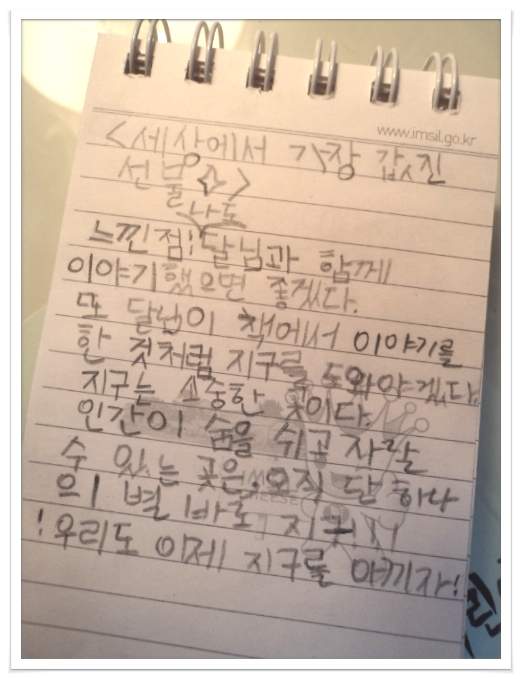 www.imsil.go.kr
<세상에서 가장 값진
선물☆>
나도
느낀점: 달님과 함께
이야기했으면 좋겠다.
또 달님이 책에서 이야기를
한 것처럼 지구를 도와야겠다.
지구는 소중한 곳이다.
인간이 숨을 쉬고 자랄
수 있는 곳은, 오직 단 하나
의 별 바로 지구!!!
!우리도 이제 지구를 아끼자!